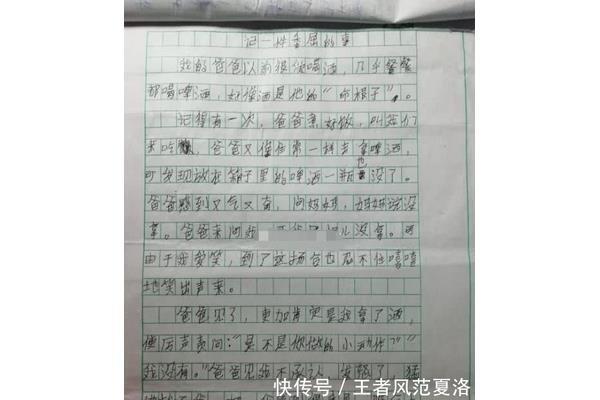 记一件委屈的事
我的爸爸以前很很喝酒，几乎餐餐
都喝啤酒，好像酒是他的“命根子”。
记得有一次，爸爸煮好饭，叫我们
来吃，爸爸又像往常一样去拿啤酒，
可发现放在箱子里的啤酒一瓶也没了。
爸爸感到又气又奇，问妈妈，妈妈说没
拿。爸爸来问我 儿没拿。
由于我爱笑，到了这场合也忍不住嘻嘻
地笑出声来。
爸爸见了，更加肯定是我拿了酒，
便厉声责问：“是不是你做的小动作？”“
我没有。”爸爸见我不承认，发怒了，猛
快传号／王者风范夏洛